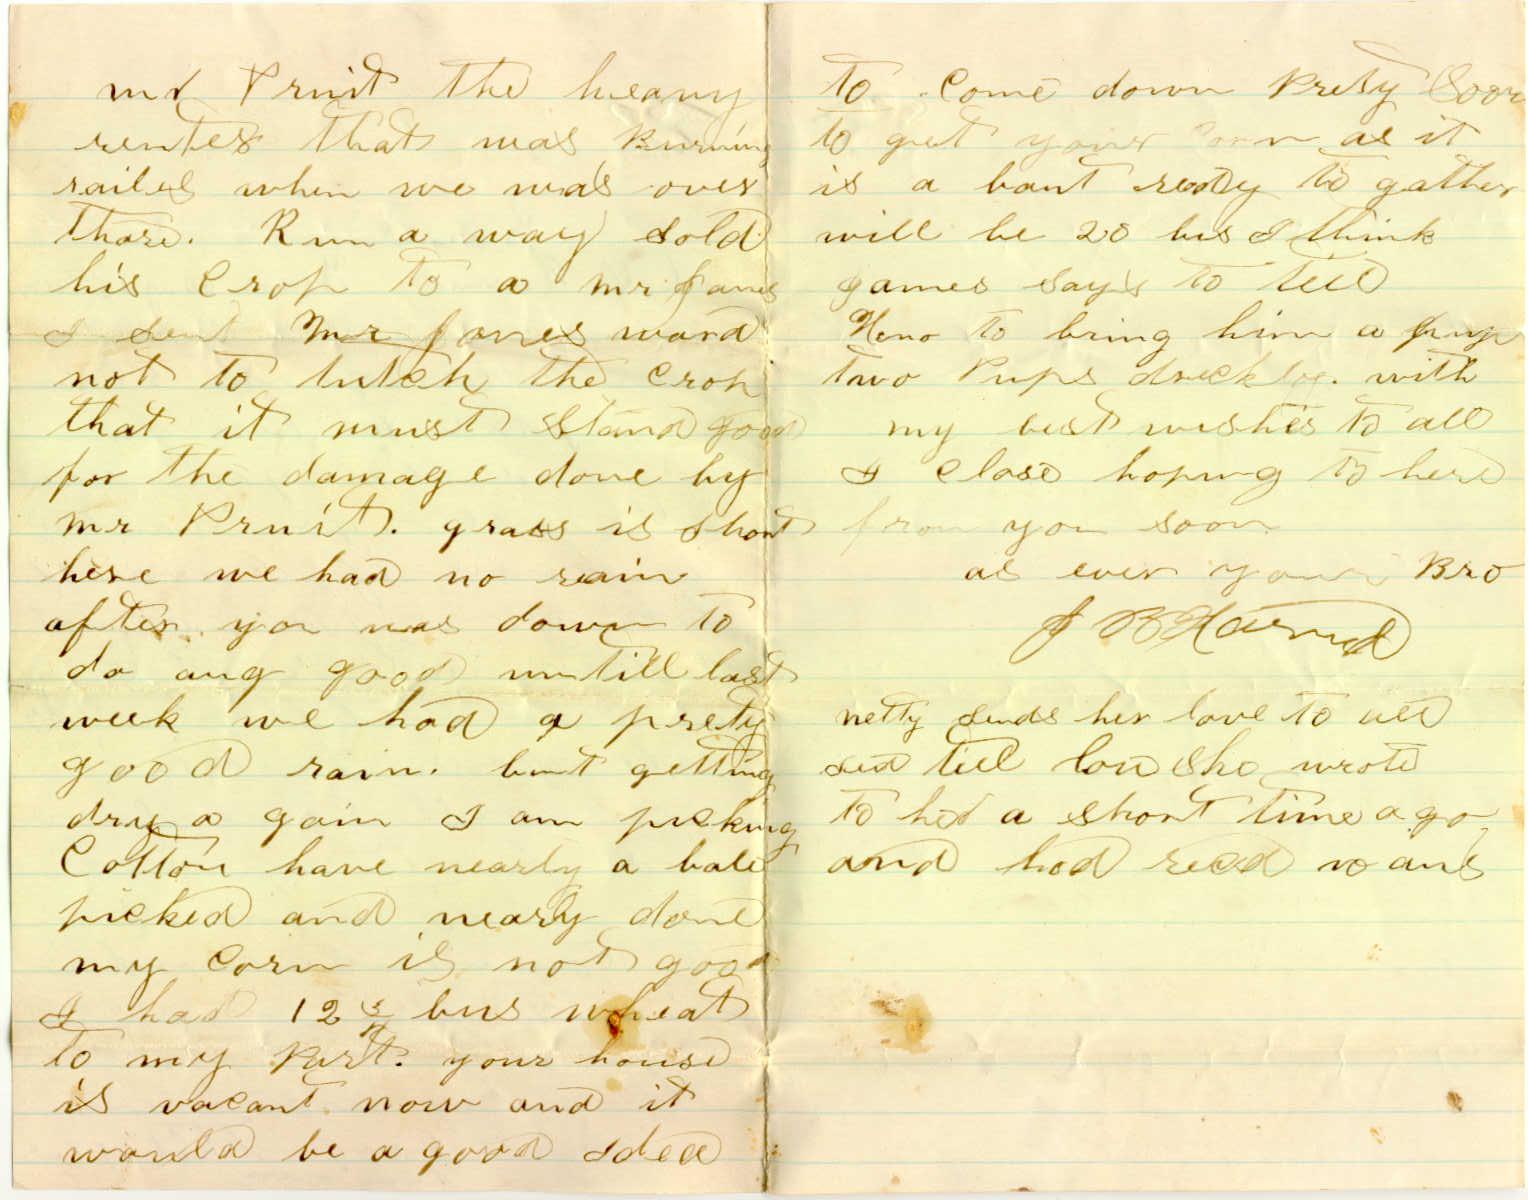 mr Pruit the heavy
renter that was Burning
railes when we was over
thare. Run a way sold
his Crop to a mr Jones
I sent Mr Jones ward
not to tutch the Crop
that it must stand good
for the damage done by
mr Pruit. grass is short
here we had no rain
after you was down to
do any good untill last
week we had a prety
good rain. but getting
dry a gain I am picking
Cotton have nearly a bale
picked and nearly done
my Corn is not good
I had 12 3/4 bus wheat
to my Part. your house
is vacant now and it
would be a good idea
to Come down Prety Soon
to get your Corn as it
is a bout ready to gather
will be 20 bus I think
games says to tell
to bring him a pup
two Pups with
my best wishes to all
I Close hoping to here
from you soon
as ever your Bro
J B Harrod
netty sends her love to all
sed tell lou She wrote
to her a short time ago
and had recd no ans